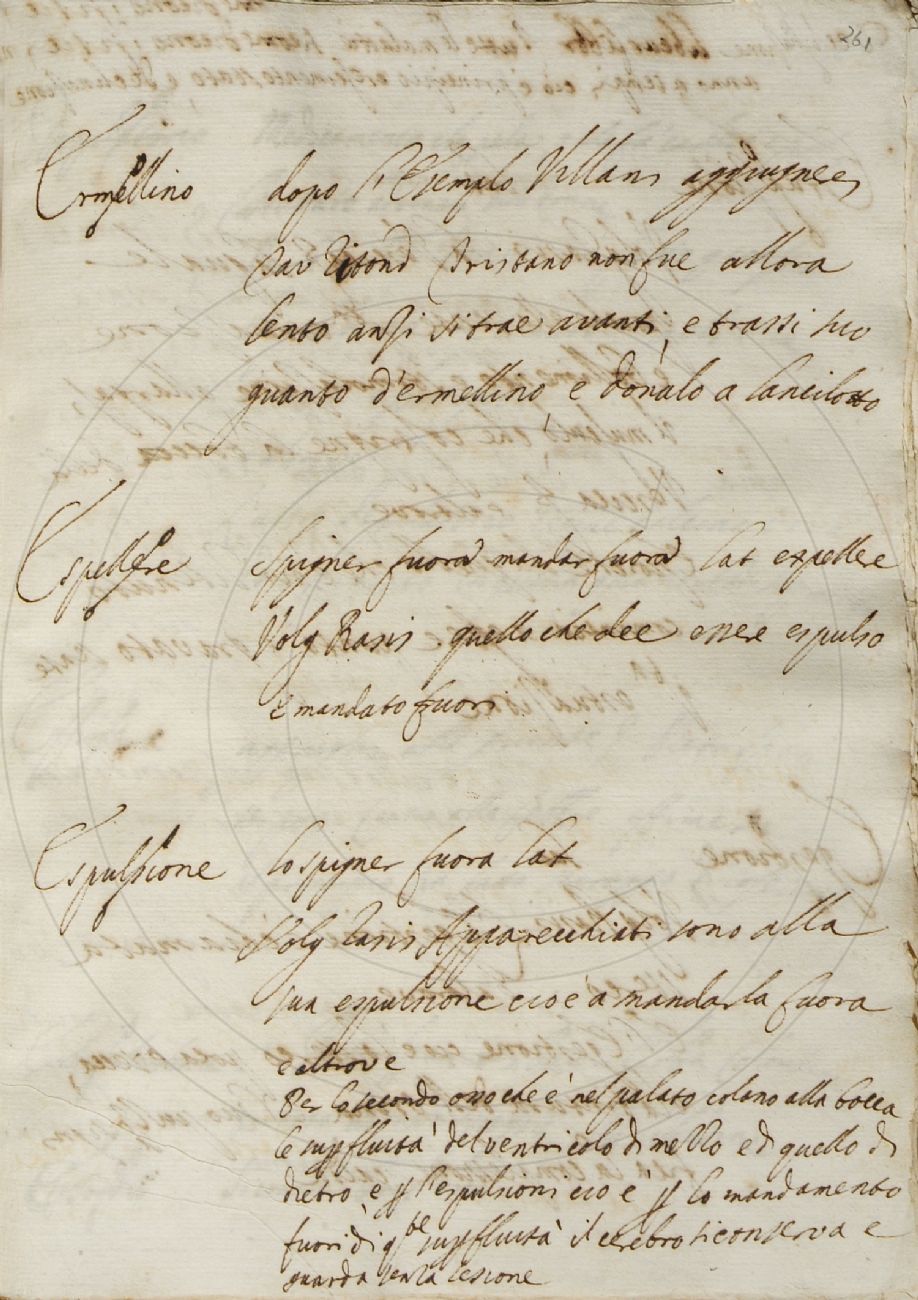 261
Ermellino dopo l'Esemplo Villani aggiugneres
Tav Ritond Tristano non fue allora
lento anzi si trae avanti, e trassi suo
guanto d'ermellino, e donalo a Lancilotto
Espellere Spigner fuora mandar fuora lat expellere
Volg Rasis quello che dee essere espulso
e mandato fuori
Espulsione Lo spigner fuora Lat
Volg Rasis Apparecchiati sono alla
sua espulsione cio è a mandarla fuora
e altrove
Per lo secondo osso che è nel palato colano alla bocca
le supfluità del ventricolo di mezzo e di quello di
dietro, e p l'espulsioni cio è p lo mandamento
fuori di qste supfluità il cerebro si conserva e
guarda senza lesione